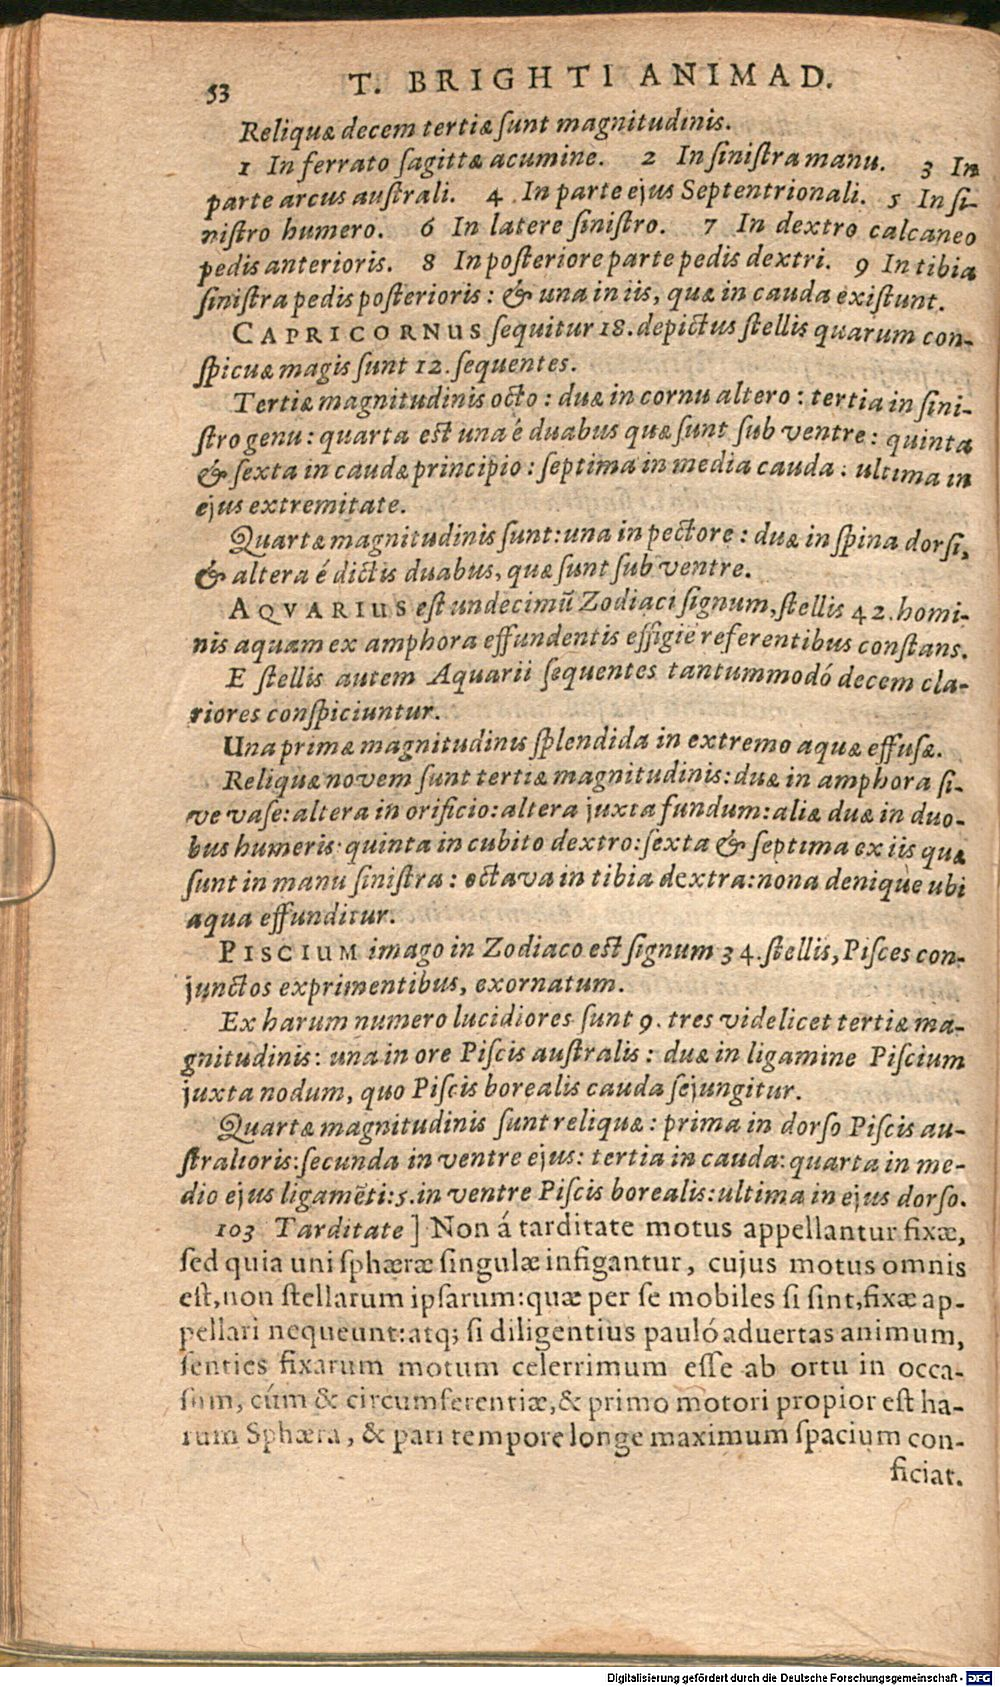 53 T. BRIGHTI ANIMAD.
Reliquæ decem tertiæ ſunt magnitudinis.
1 In ferrato ſagittæ acumine. 2 In ſiniſtra manu. 3 In
parte arcus auſtrali. 4 In parte ejus Septentrionali. 5 In ſi-
niſtro humero. 6 In latere ſiniſtro. 7 In dextro calcaneo
pedis anterioris. 8 In poſteriore parte pedis dextri. 9 In tibia
ſiniſtra pedis poſterioris: & una in iis, quæ in cauda exiſtunt.
CAPRICORNUS ſequitur 18. depictus ſtellis quarum con-
ſpicuæ magis ſunt 12. ſequentes.
Tertiæ magnitudinis octo: duæ in cornu altero: tertia in ſini-
ſtro genu: quarta eſt una é duabus quæ ſunt ſub ventre: quinta
& ſexta in caudæ principio: ſeptima in media cauda: ultima in
ejus extremitate.
Quartæ magnitudinis ſunt: una in pectore: duæ in ſpina dorſi,
& altera é dictis duabus, quæ ſunt ſub ventre.
AQVARIUS eſt undecimũ Zodiaci ſignum, ſtellis 42. homi-
nis aquam ex amphora effundentis effigiẽ referentibus conſtans.
E ſtellis autem Aquarii ſequentes tantummodó decem cla-
riores conſpiciuntur.
Una primæ magnitudinis ſplendida in extremo aquæ effuſæ.
Reliquæ novem ſunt tertiæ magnitudinis: duæ in amphora ſi-
ve vaſe: altera in orificio: altera juxta fundum: aliæ duæ in duo-
bus humeris: quinta in cubito dextro: ſexta & ſeptima ex iis quæ
ſunt in manu ſiniſtra: octava in tibia dextra: nona denique ubi
aqua effunditur.
PISCIUM imago in Zodiaco eſt ſignum 34. ſtellis, Piſces con-
junctos exprimentibus, exornatum.
Ex harum numero lucidiores ſunt 9. tres videlicet tertiæ ma-
gnitudinis: una in ore Piſcis auſtralis: duæ in ligamine Piſcium
juxta nodum, quo Piſcis borealis cauda ſejungitur.
Quartæ magnitudinis ſunt reliquæ: prima in dorſo Piſcis au-
ſtralioris: ſecunda in ventre ejus: tertia in cauda: quarta in me-
dio ejus ligamẽti: 5. in ventre Piſcis borealis: ultima in ejus dorſo.
103 Tarditate] Non á tarditate motus appellantur fixæ,
ſed quia uni ſphæræ ſingulæ infigantur, cujus motus omnis
eſt, non ſtellarum ipſarum: quæ per ſe mobiles ſi ſint, fixæ ap-
pellari nequeunt: atq; ſi diligentius pauló aduertas animum,
ſenties fixarum motum celerrimum eſſe ab ortu in occa-
ſum, cúm & circumferentiæ, & primo motori propior eſt ha-
rum Sphæra, & pari tempore longe maximum ſpacium con-
ficiat.
Digitalisierung gefördert durch die Deutsche Forschungsgemeinschaft - DFG